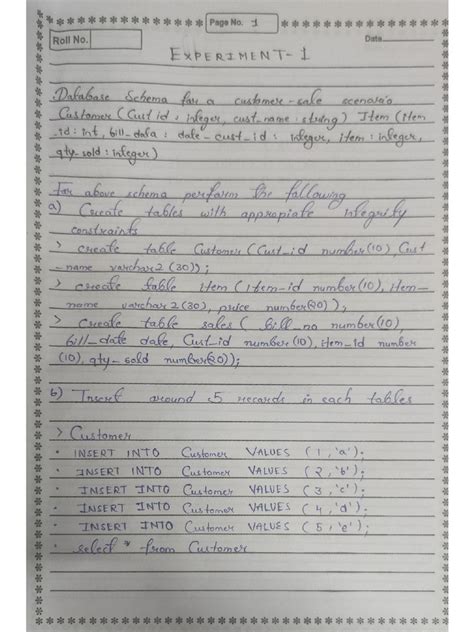 Page No. 1
Roll No.
Date
EXPERIMENT-1
Database Schema for a customer-sale scenario
Customer (Cust id : integer, cust_name : string) Item (item_
id : int, bill_data : date_cust_id : integer, item : integer,
qty_sold : integer)
For above schema perform the following
a) Create tables with appropiate integrity
constraints
> create table Customer (Cust_id number(10), Cust
-name varchar2 (30));
> create table item (Item-id number(10), Item-
name varchar2(30), price number(20));
> Create table sales ( bill_no number(10),
bill_date date, Cust_id number(10), Item_id number
(10), qty_sold number(20));
b) Insert around 5 records in each tables
> Customer
• INSERT INTO Customer VALUES (1,'a');
• INSERT INTO Customer VALUES (2,'b');
• INSERT INTO Customer VALUES (3,'c');
• INSERT INTO Customer VALUES (4,'d');
• INSERT INTO Customer VALUES (5,'e');
• select * from Customer